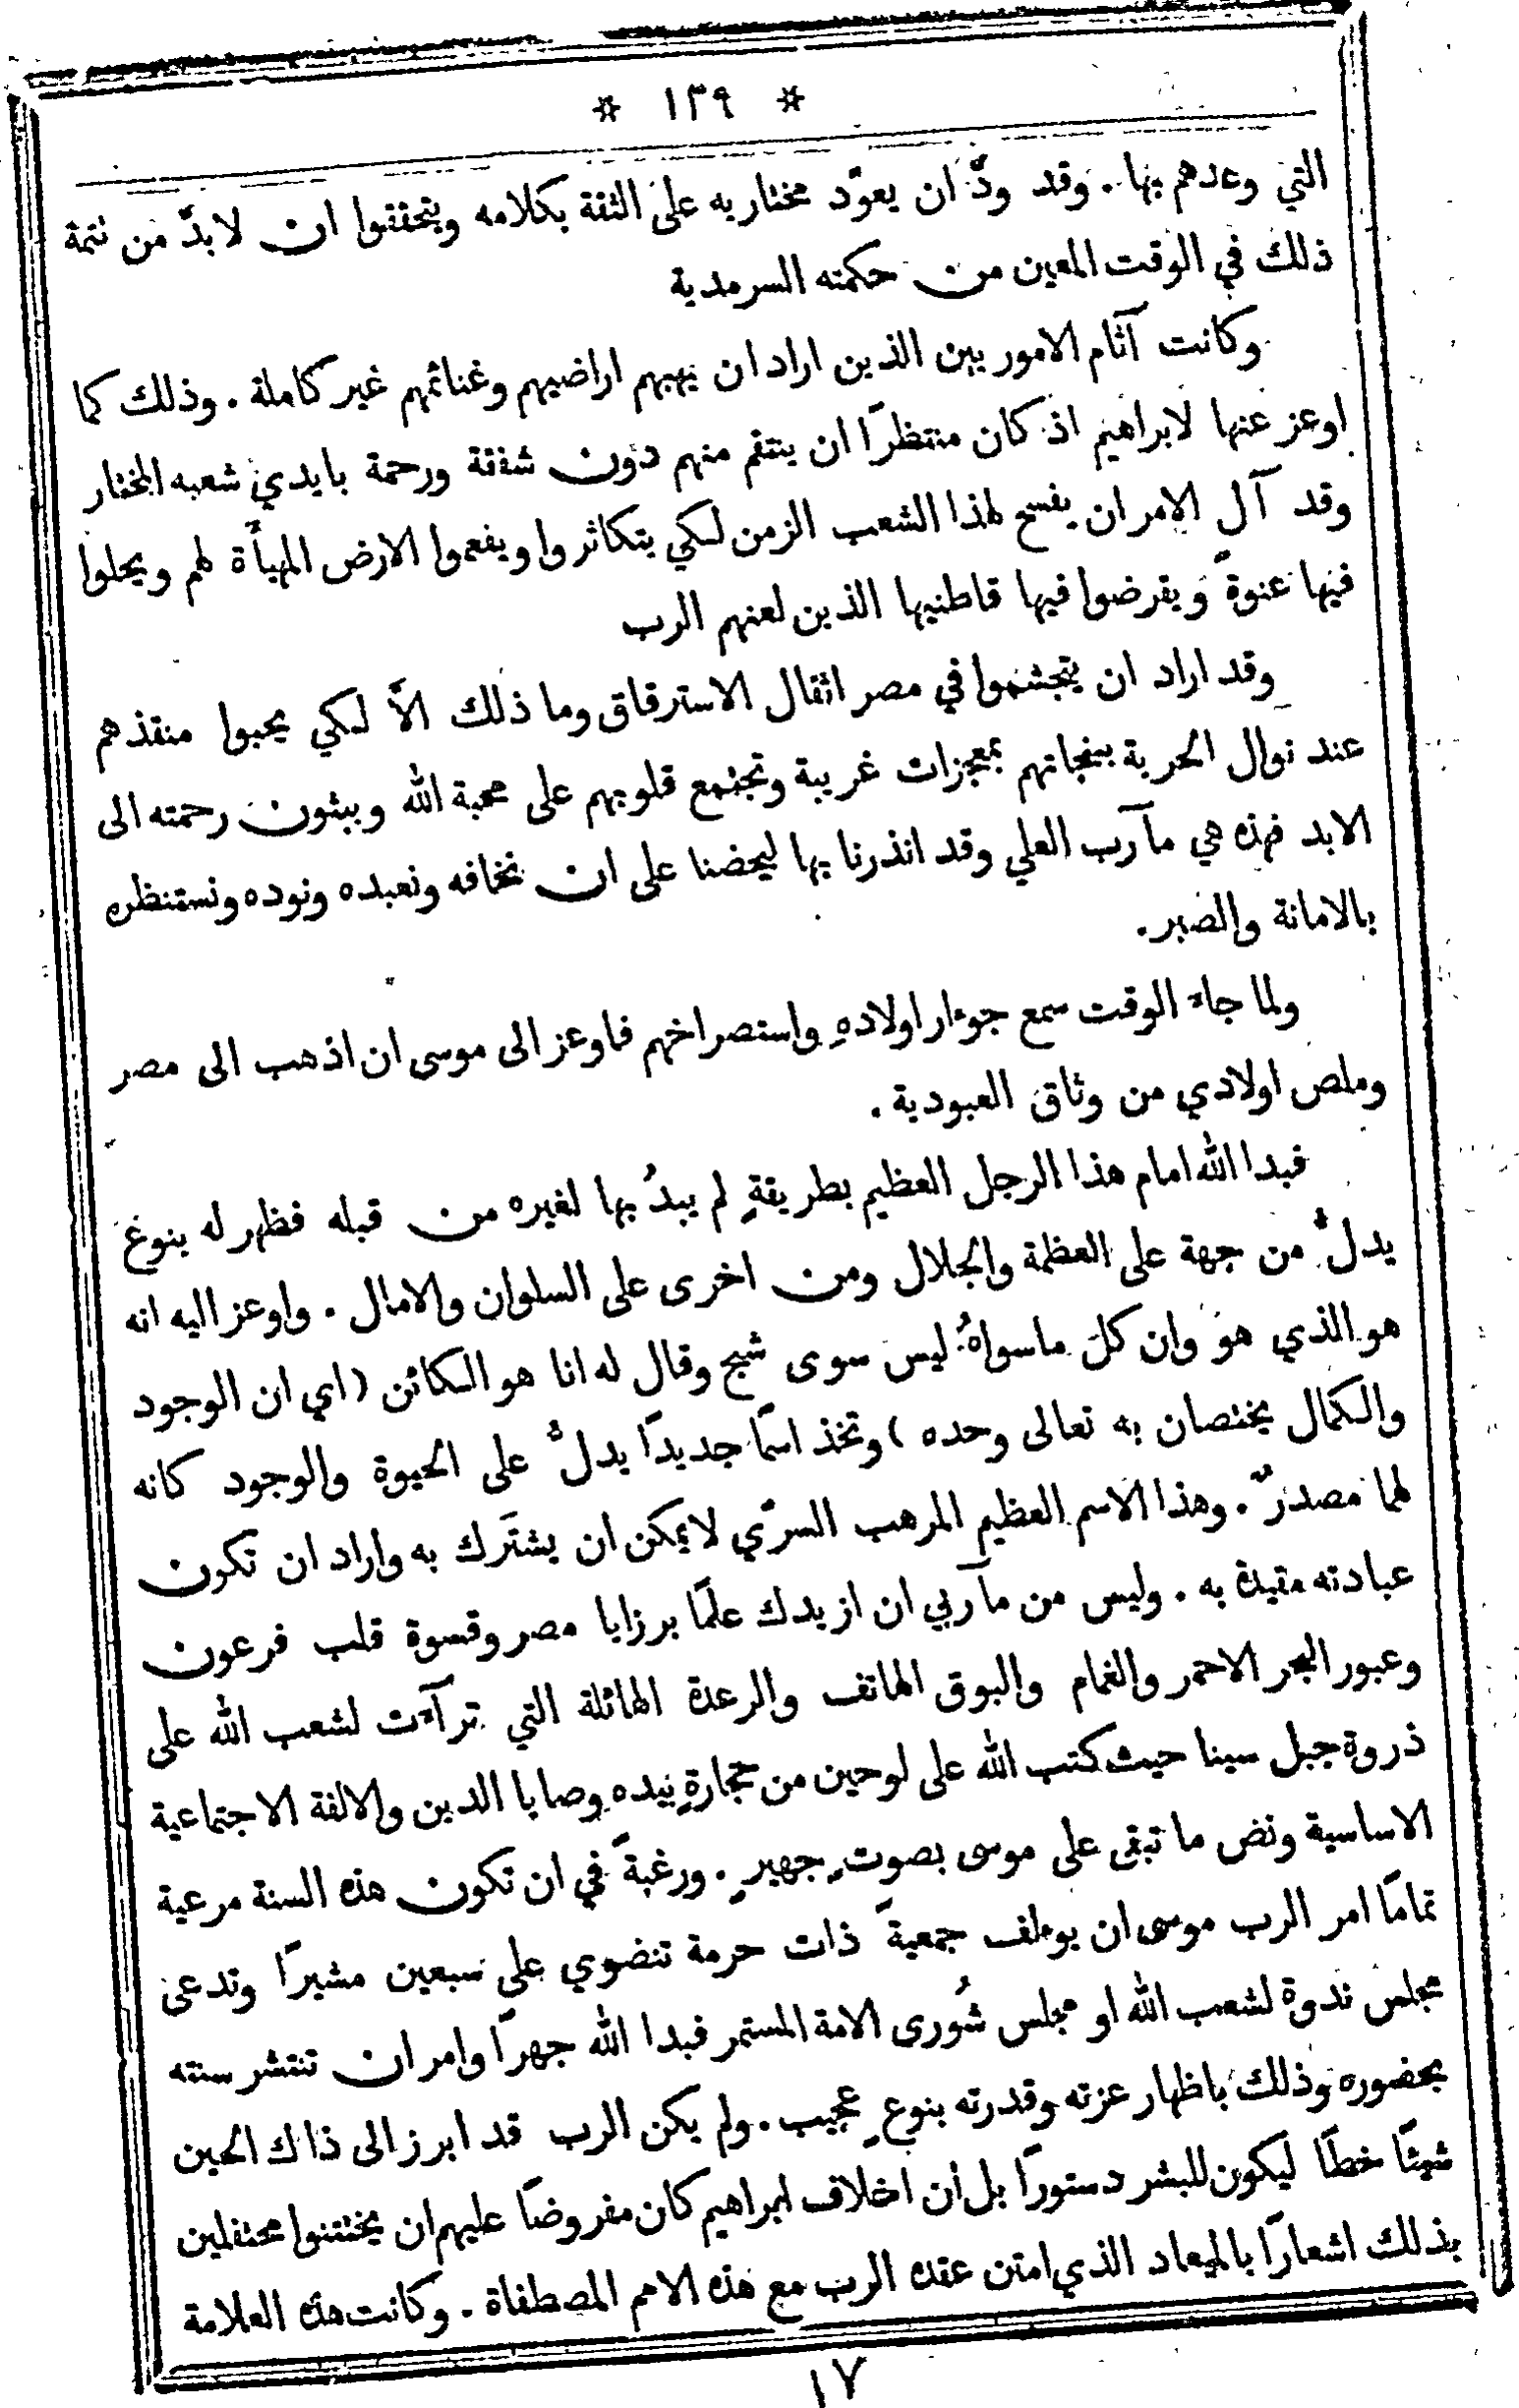 * ١٣٩ *
التي وعدهم بها. وقد ودَّ ان يعوّد مختاريه على الثقة بكلامه ويتحققوا ان لابدَّ من تتمة
ذلك في الوقت المعين من حكمته السرمدية
وكانت آثام الامور بين الذين اراد ان يهبهم اراضيهم وغنائمهم غير كاملة. وذلك كما
اوعز عنها لابراهيم اذ كان منتظرًا ان ينتقم منهم دون شفقة ورحمة بايدي شعبه المختار
وقد آل الامر ان يفسح لهذا الشعب الزمن لكي يتكاثروا ويفعموا الارض المهيأة لهم ويحلوا
فيها عنوةً ويقرضوا فيها قاطنيها الذين لعنهم الرب
وقد اراد ان يتجشموا في مصر اثقال الاسترقاق وما ذلك الاَّ لكي يحبوا منقذهم
عند نوال الحرية بينجاتهم بمعجزات غريبة وتجتمع قلوبهم على محبة الله ويبثون رحمته الى
الابد فهذه هي مآرب العلي وقد انذرنا بها ليحضنا على ان نخافه ونعبده ونوده ونستنظره
بالامانة والصبر.
ولما جاء الوقت سمع جوءار اولادهِ واستصراخهم فاوعز الى موسى ان اذهب الى مصر
وملص اولادي من وثاق العبودية.
فبدا الله امام هذا الرجل العظيم بطريقةٍ لم يبدُ بها لغيره من قبله فظهر له بنوع
يدلُّ من جهة على العظمة والجلال ومن اخرى على السلوان والامال. واوعز اليه انه
هو الذي هو وان كلَ ماسواهُ ليس سوى شبح وقال له انا هو الكائن (اي ان الوجود
والكمال يختصان به تعالى وحده) وتخذ اسمًا جديدًا يدلُّ على الحيوة والوجود كانه
لهما مصدرٌ. وهذا الاسم العظيم المرهب السرّي لايمكن ان يشتَرك به واراد ان تكون
عبادته مقيدة به. وليس من مآربي ان ازيدك علمًا برزايا مصر وقسوة قلب فرعون
وعبور البحر الاحمر والغمام والبوق الهاتف والرعدة الهائلة التي ترآءت لشعب الله على
ذروة جبل سينا حيث كتب الله على لوحين من حجارةٍ بيده وصايا الدين والالفة الاجتماعية
الاساسية ونض ما تبقى على موسى بصوتٍ جهيرٍ. ورغبةً في ان تكون هذه السنة مرعية
تمامًا امر الرب موسى ان يوءلف جمعيةً ذات حرمة تنضوي على سبعين مشيرًا وتدعى
مجلس ندوة لشعب الله او مجلس شُورى الامة المستمر فبدا الله جهرًا وامر ان تنتشر سنته
بحضوره وذلك باظهار عزته وقدرته بنوعٍ عجيب. ولم يكن الرب قد ابرز الى ذاك الحين
شيئًا خطًا ليكون للبشر دستورًا بل ان اخلاف ابراهيم كان مفروضًا عليهم ان يختتنوا محتفلين
بذلك اشعارًا بالميعاد الذي امتن عقده الرب مع هذه الامم المصطفاة. وكانت هذه العلامة
١٧